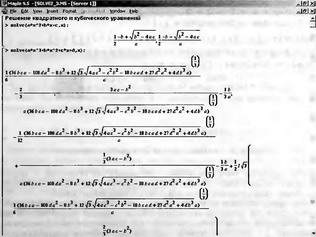 Maple V.5 - [SOLVE2_3.MS - [Server 1]]
File Edit View Insert Format Options Window Help
Решение квадратного и кубического уравнений
> solve(a*x^2+b*x+c,x);
1/2 (-b + √(b² - 4ac))/a, 1/2 (-b - √(b² - 4ac))/a
> solve(a*x^3+b*x^2+c*x+d,x);
1/6 (36bca - 108da² - 8b³ + 12√3 √(4ac³ - c²b² - 18bcad + 27d²a² + 4db³) a)^(1/3) / a
- 2/3 (3ac - b²) / (a (36bca - 108da² - 8b³ + 12√3 √(4ac³ - c²b² - 18bcad + 27d²a² + 4db³) a)^(1/3)) - 1/3 b/a,
- 1/12 (36bca - 108da² - 8b³ + 12√3 √(4ac³ - c²b² - 18bcad + 27d²a² + 4db³) a)^(1/3) / a
+ 1/3 (3ac - b²) / (a (36bca - 108da² - 8b³ + 12√3 √(4ac³ - c²b² - 18bcad + 27d²a² + 4db³) a)^(1/3)) - 1/3 b/a + 1/2 I√3 (
1/6 (36bca - 108da² - 8b³ + 12√3 √(4ac³ - c²b² - 18bcad + 27d²a² + 4db³) a)^(1/3) / a
2/3 (3ac - b²)